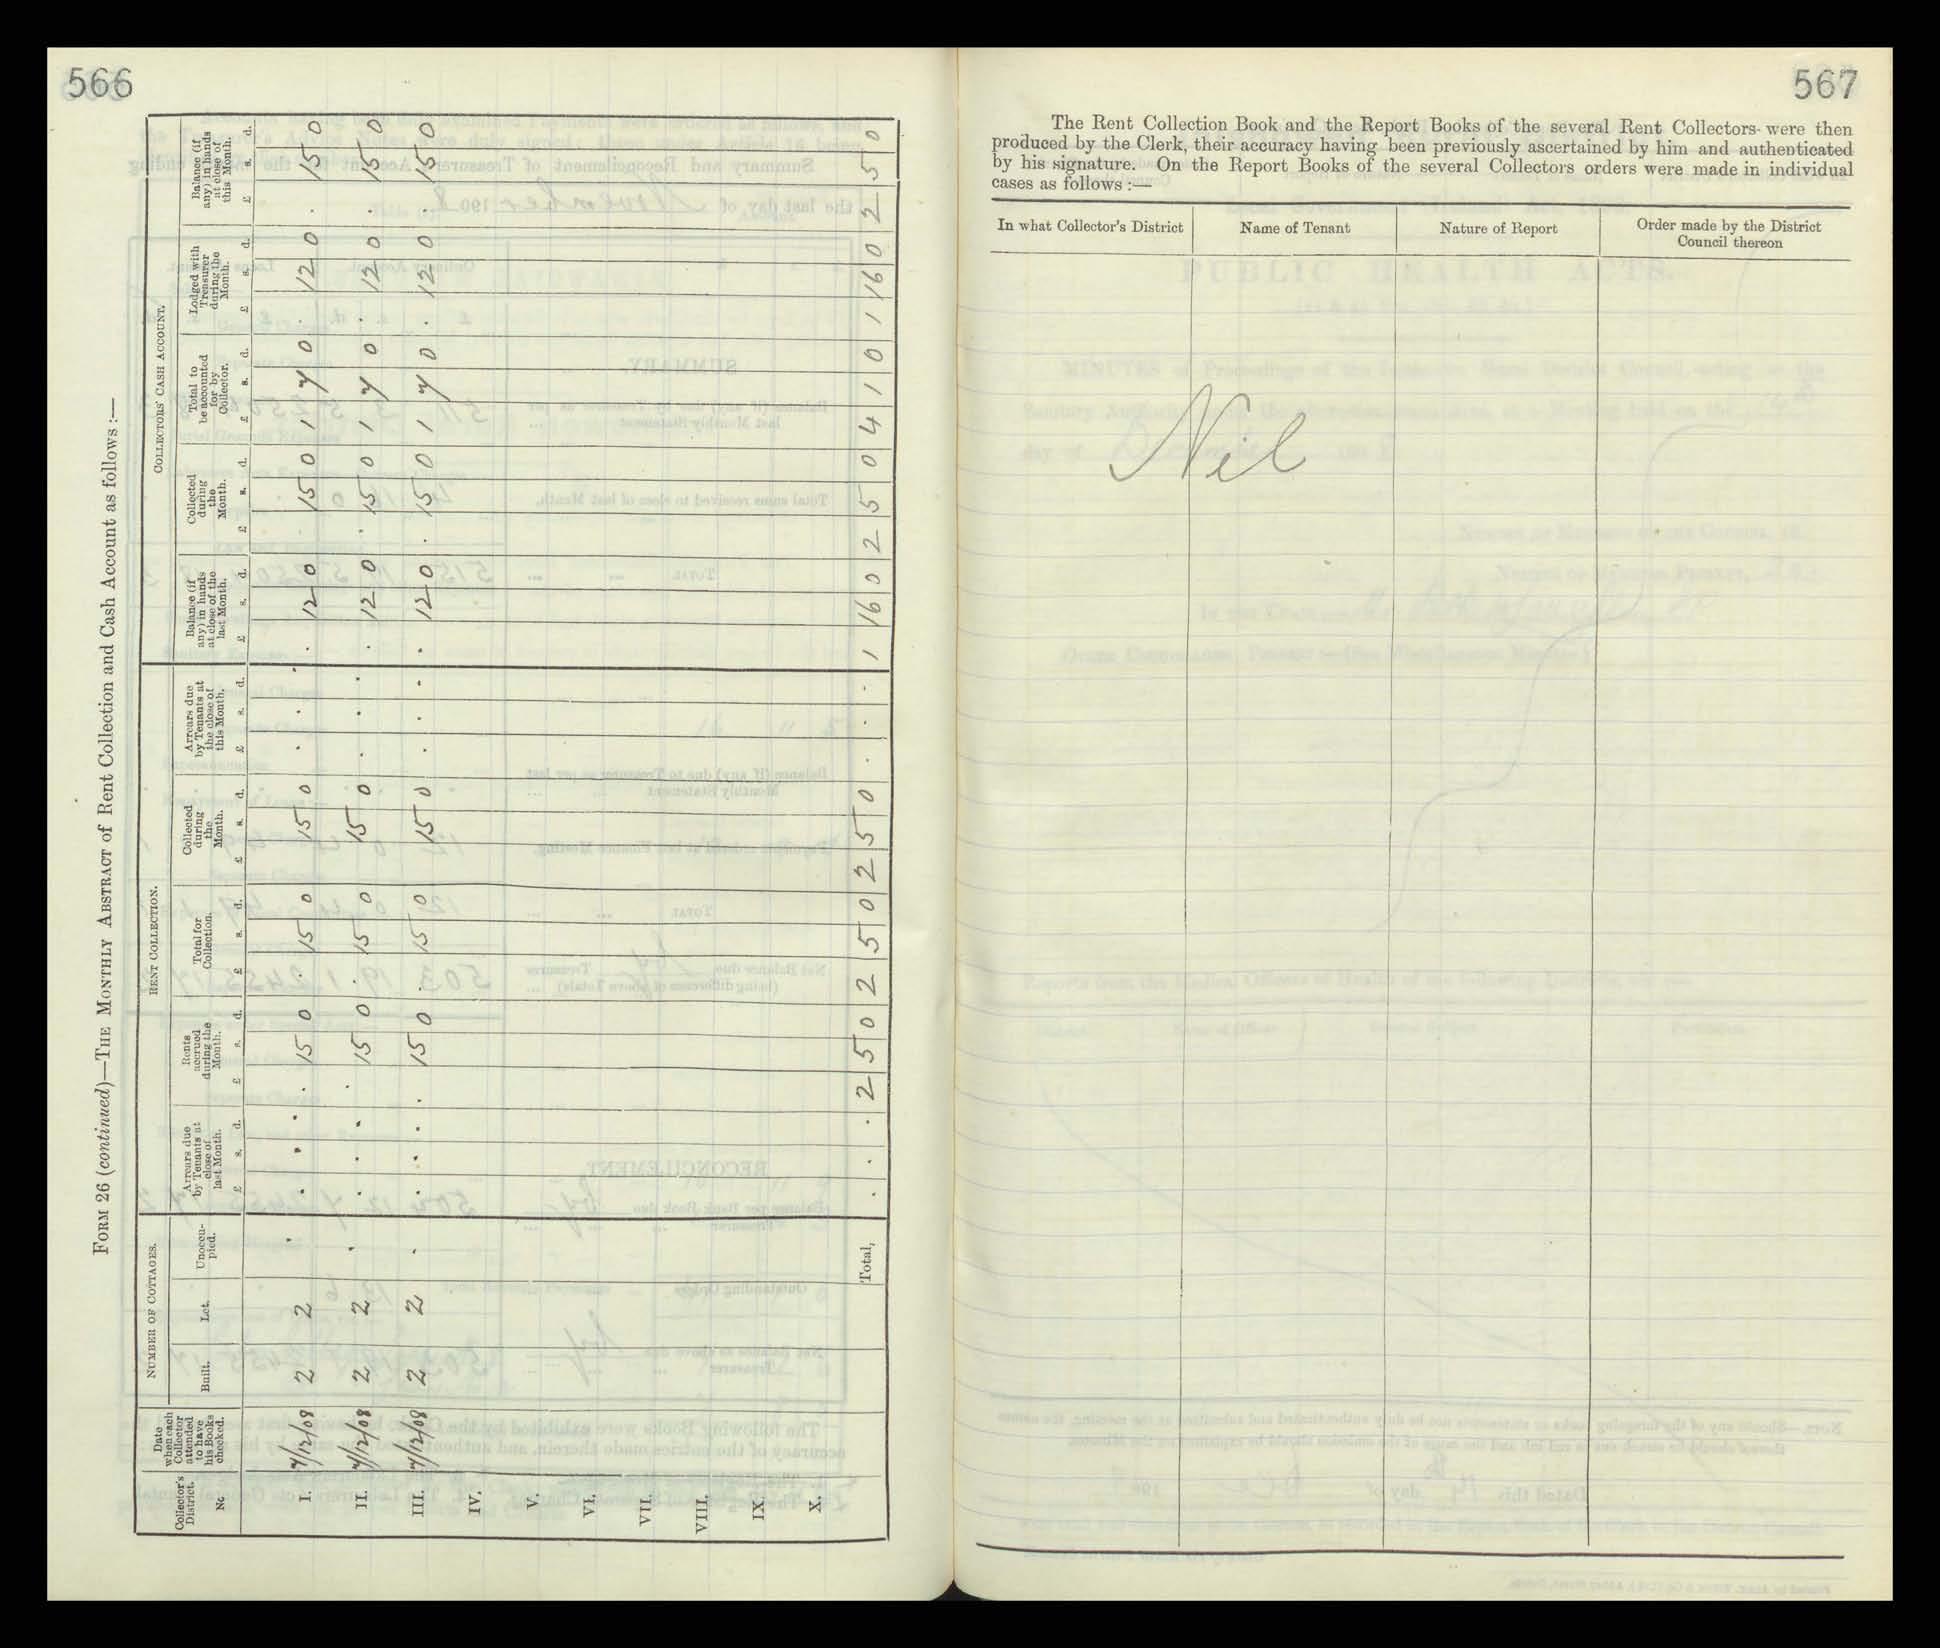 566
FORM 26 (continued)—THE MONTHLY ABSTRACT of Rent Collection and Cash Account as follows :—
NUMBER OF COTTAGES. RENT COLLECTION. COLLECTORS' CASH ACCOUNT.
Collector's District. No. | Date when each Collector attended to have his Books checked. | Built. | Let. | Unoccupied. | Arrears due by Tenants at close of last Month. | Rents accrued during the Month. | Total for Collection. | Collected during the Month. | Arrears due by Tenants at the close of this Month. | Balance (if any) in hands at close of the last Month. | Collected during the Month. | Total to be accounted for by Collector. | Lodged with Treasurer during the Month. | Balance (if any) in hands at close of this Month.
£ s. d. £ s. d. £ s. d. £ s. d. £ s. d. £ s. d. £ s. d. £ s. d. £ s. d. £ s. d.
I. 7/12/08 2 2 . . . . . 15 0 . 15 0 15 0 . . . . 12 0 . 15 0 1 7 0 . 12 0 . 15 0
II. 7/12/08 2 2 . . . . . 15 0 . 15 0 15 0 . . . . 12 0 . 15 0 1 7 0 . 12 0 . 15 0
III. 7/12/08 2 2 . . . . . 15 0 . 15 0 15 0 . . . . 12 0 . 15 0 1 7 0 . 12 0 . 15 0
IV.
V.
VI.
VII.
VIII.
IX.
X.
Total, . . . 2 5 0 2 5 0 2 5 0 . . . 1 16 0 2 5 0 4 1 0 1 16 0 2 5 0
567
The Rent Collection Book and the Report Books of the several Rent Collectors were then
produced by the Clerk, their accuracy having been previously ascertained by him and authenticated
by his signature. On the Report Books of the several Collectors orders were made in individual
cases as follows :—
In what Collector's District | Name of Tenant | Nature of Report | Order made by the District Council thereon
Nil